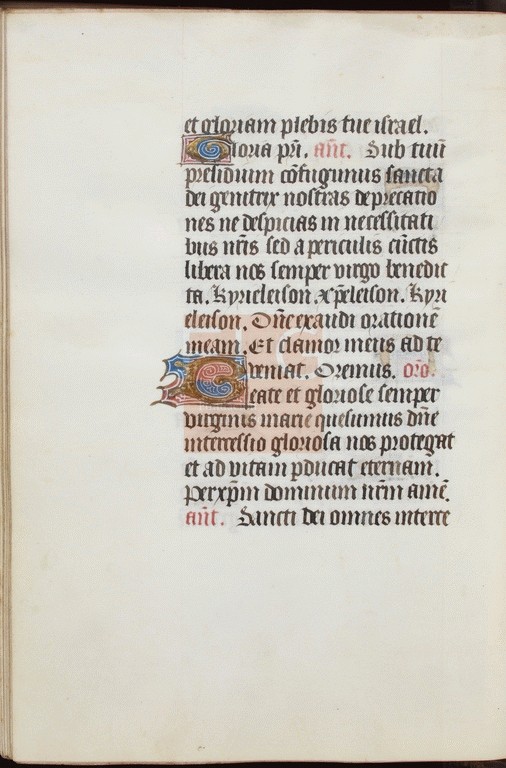 et gloriam plebis tue israel.
Gloria pri. ant. Sub tuu
presidium cofugimus sancta
dei genitrix nostras deprecatio
nes ne despicias in necessitati
bus nris sed a periculis cuctis
libera nos semper virgo benedic
ta. Kyrieleison. Xpeleison. Kyri
eleison. Dne exaudi oratione
meam. Et clamor meus ad te
veniat. Oremus. oro.
Beate et gloriose semper
virginis marie quesumus dne
intercessio gloriosa nos protegat
et ad vitam pducat eternam.
Per xpm dominum nrm ame.
ant. Sancti dei omnes interce